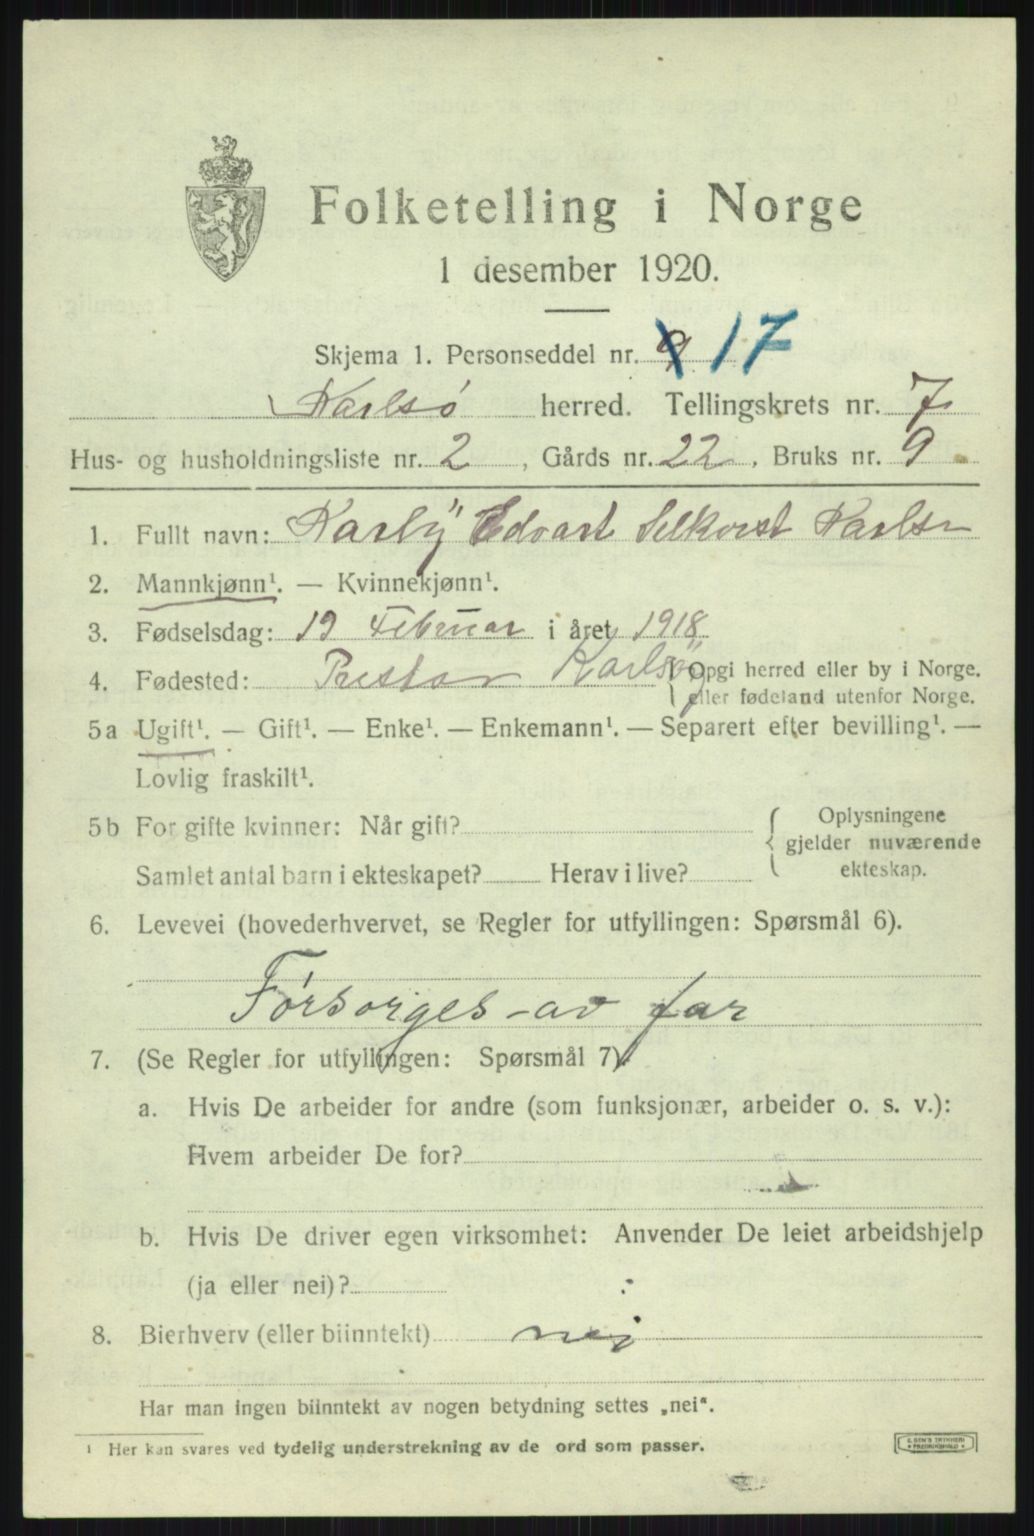 Folketelling i Norge
1 desember 1920.
Skjema 1. Personseddel nr. 9 17
Karlsø herred. Tellingskrets nr. 7
Hus- og husholdningsliste nr. 2, Gårds nr. 22. Bruks nr. 9
1. Fullt navn: Karly Edvart Selkvist Karlsen
2. Mannkjønn¹. — Kvinnekjønn¹.
3. Fødselsdag: 19 Februar i året 1918
4. Fødested: Karlsøy Opgi herred eller by i Norge.
eller fødeland utenfor Norge.
5a Ugift¹. — Gift¹. — Enke¹. — Enkemann¹. — Separert efter bevilling¹. —
Lovlig fraskilt¹.
5b For gifte kvinner: Når gift?
Samlet antal barn i ekteskapet? Herav i live?
Oplysningene
gjelder nuværende
ekteskap.
6. Levevei (hovederhvervet, se Regler for utfyllingen: Spørsmål 6).
Førsorges av far
7. (Se Regler for utfyllingen: Spørsmål 7)
a. Hvis De arbeider for andre (som funksjonær, arbeider o. s. v.):
Hvem arbeider De for?
b. Hvis De driver egen virksomhet: Anvender De leiet arbeidshjelp
(ja eller nei)?
8. Bierhverv (eller biinntekt) nei
Har man ingen biinntekt av nogen betydning settes „nei“.
¹ Her kan svares ved tydelig understrekning av de ord som passer.